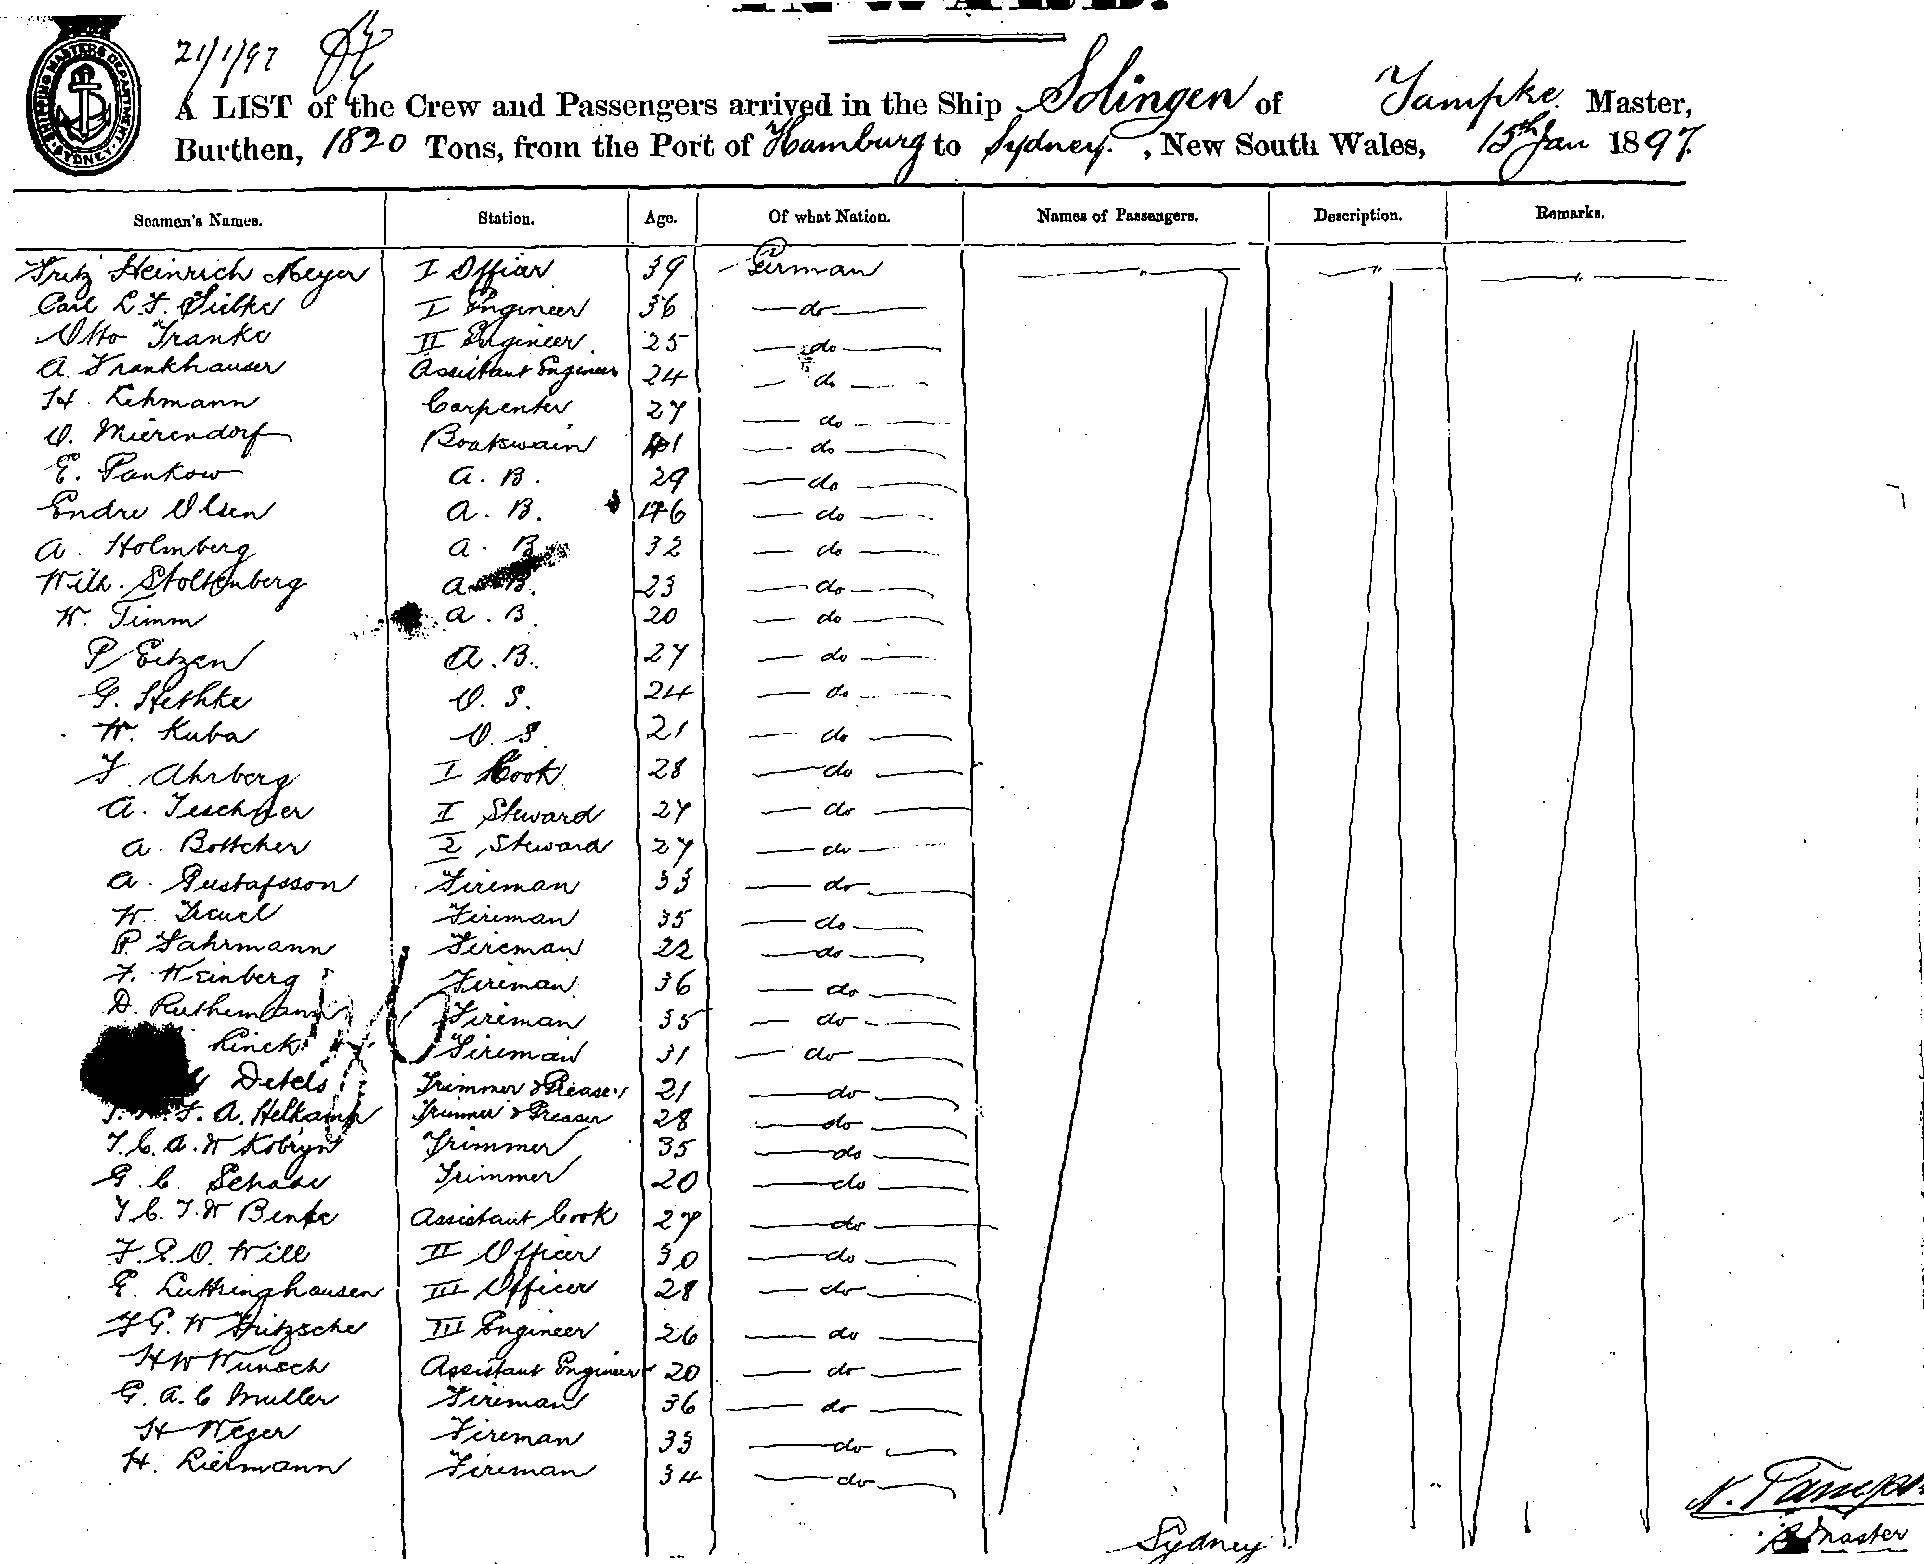 INWARD.
21/1/97
SHIPPING MASTERS DEPARTMENT SYDNEY
A LIST of the Crew and Passengers arrived in the Ship Solingen of Tampke. Master,
Burthen, 1820 Tons, from the Port of Hamburg to Sydney. , New South Wales, 15th Jan 1897.
Seamen's Names. Station. Age. Of what Nation. Names of Passengers. Description. Remarks.
Fritz Heinrich Meyer I Officer 39 German " " "
Carl L. F. 36 I Engineer do
Otto Franke II Engineer. 25 do
A Frankhauser Assistant Engineer 24 do
H. Lehmann Carpenter 27 do
O. Mierendorf Boatswain 41 do
E. Pankow A. B. 29 do
Endre Olsen A. B. 46 do
A. Holmberg A. B. 32 do
Wilh. Stoltenberg A. B. 23 do
W. Timm A. B. 20 do
P Eitzen A. B. 27 do
G. Stethke O. S. 24 do
W. Kuba O. S. 21 do
F Ahrberg I Cook 28 do
A. Teschner I Steward 27 do
A. Bottcher 2 Steward 27 do
A. Gustafsson Fireman 33 do
W. Fireman 35 do
P Fahrmann Fireman 22 do
F. Weinberg Fireman. 36 do
D. Ruthemann Fireman 35 do
Rinck Fireman 31 do
Detels Trimmer & Greaser 21 do
F. A. Helkamp Trimmer & Greaser 28 do
T. C. A. W Kobryn Trimmer 35 do
G. C. Schade Trimmer 20 do
T C. T. W Benke Assistant Cook 27 do
F. E. O. Will II Officer 30 do
E. Luttringhausen III Officer 28 do
F G. W Fritzsche III Engineer 26 do
H W Wunsch Assistant Engineer 20 do
G. A. C Muller Fireman 36 do
H Weger Fireman 33 do
H. Liermann Fireman 34 do
Sydney
Master